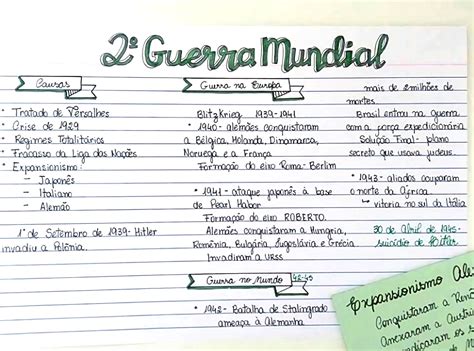 2ª Guerra Mundial
Causas
• Tratado de Versalhes
• Crise de 1929
• Regimes Totalitários
• Fracasso da Liga das Nações
• Expansionismo:
- Japonês
- Italiano
- Alemão
1º de Setembro de 1939- Hitler
invadiu a Polônia.
Guerra na Europa
BlitzKrieg 1939-1941
• 1940- alemães conquistaram
a Bélgica, Holanda, Dinamarca,
Noruega e a França
Formação do eixo Roma-Berlim
• 1941- ataque japonês à base
de Pearl Habor
Formação do eixo ROBERTO.
Alemães conquistaram a Hungria,
Romênia, Bulgária, Iugoslávia e Grécia
Invadiram a URSS
Guerra no Mundo 42-45
• 1942- Batalha de Stalingrado
ameaça à Alemanha
mais de 2milhões de
mortes
Brasil entrou na guerra
com a força expedicionária
Solução Final- plano
secreto que usava judeus.
• 1943- aliados ocuparam
o norte da África
↳ vitoria no sul da Itália
30 de Abril de 1945-
suicídio de Hitler
Expansionismo
Conquistaram a
Anexaram a